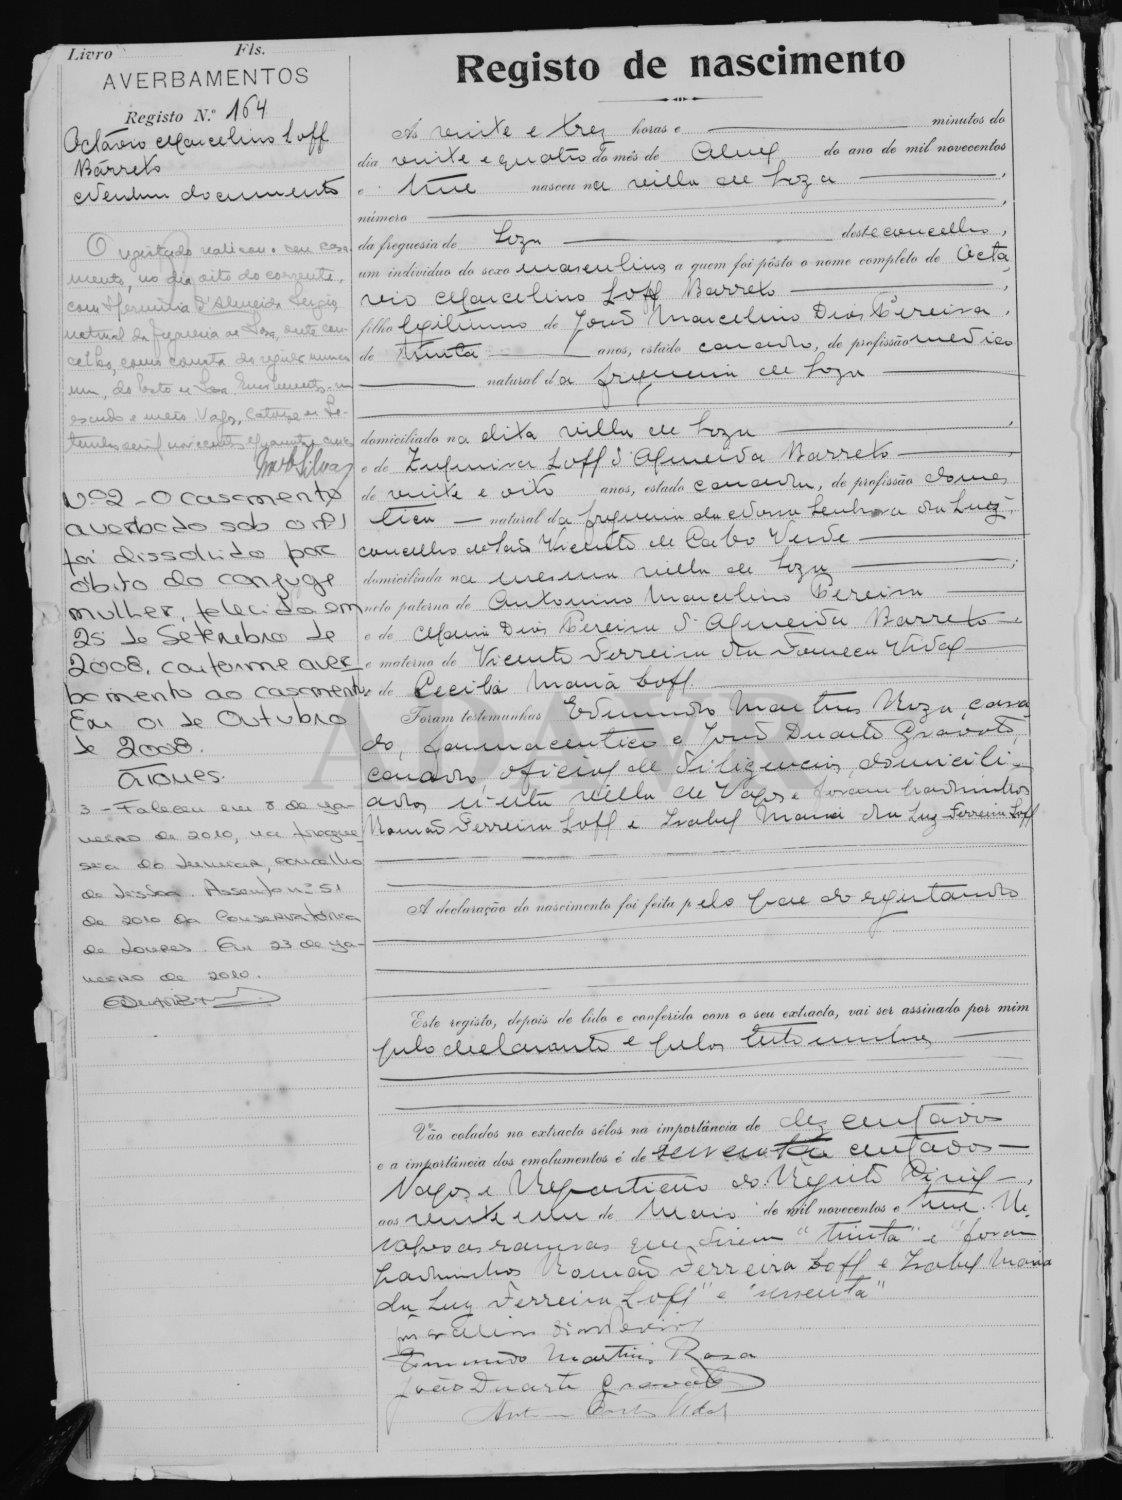 Livro Fls.
AVERBAMENTOS
Registo N.º 164
Octávio Marcelino Loff
Barreto
Nenhum documento
O registado realizou o seu casa-
mento, no dia oito do corrente,
com Herminia d'Almeida Sergio,
natural da freguesia de Soza, deste con-
celho, como consta do registo numero
um, do Posto de Soza. Emolumentos: um
escudo e meio. Vagos, catorze de Se-
tembro de mil novecentos e quarenta e
Silva
Nº 2 - O casamento
averbado sob o nº 1
foi dissolvido por
óbito do conjuge
mulher, falecida em
25 de Setembro de
2008, conforme aver-
bamento ao casamento.
Em 01 de Outubro
de 2008.
3 - Faleceu em 8 de Ja-
neiro de 2010, na fregue-
sia do Lumiar, concelho
de Lisboa. Assento nº 51
de 2010 da Conservatória
de Loures. Em 23 de Ja-
neiro de 2010.
Registo de nascimento
Ás vinte e trez horas e minutos do
dia vinte e quatro do mês de Abril do ano de mil novecentos
e treze nasceu na villa de Soza
número
da freguesia de Soza deste concelho,
um individuo do sexo masculino, a quem foi pôsto o nome completo de Octa-
vio Marcelino Loff Barreto
filho legitimo de José Marcelino Dias Pereira,
de trinta anos, estado casado, de profissão medico
natural da freguesia de Soza
domiciliado na dita villa de Soza
e de Zulmira Loff d'Almeida Barreto
de vinte e oito anos, estado casada, de profissão domes-
tica natural da freguesia da Nossa Senhora da Luz,
concelho de São Vicente de Cabo Verde
domiciliada na mesma villa de Soza
neto paterno de Antonino Marcelino Pereira
e de Maria Dias Pereira d'Almeida Barreto
e materno de Vicente Ferreira da Fonseca Vidal
e de Cecilia Maria Loff.
Foram testemunhas Edmundo Martins Roza, casa-
do, farmaceutico e João Duarte Gravato,
casado, oficial de diligencias, domicili-
ados n'esta villa de Vagos e foram padrinhos
Romão Ferreira Loff e Isabel Maria da Luz Ferreira Loff
A declaração do nascimento foi feita pelo pae do registando
Este registo, depois de lido e conferido com o seu extracto, vai ser assinado por mim
pelo declarante e pelas testemunhas
Vão colados no extracto sêlos na importância de dez centavos
e a importância dos emolumentos é de sessenta centavos
Vagos e Repartição do Registo Civil,
aos vinte e um de Maio de mil novecentos e treze. Re-
salvo as rasuras que dizem "trinta" e "foram
padrinhos Romão Ferreira Loff e Isabel Maria
da Luz Ferreira Loff" e "sessenta"
Marcelino Dias Pereira
Edmundo Martins Rosa
João Duarte Gravato
Vidal
ADAVR